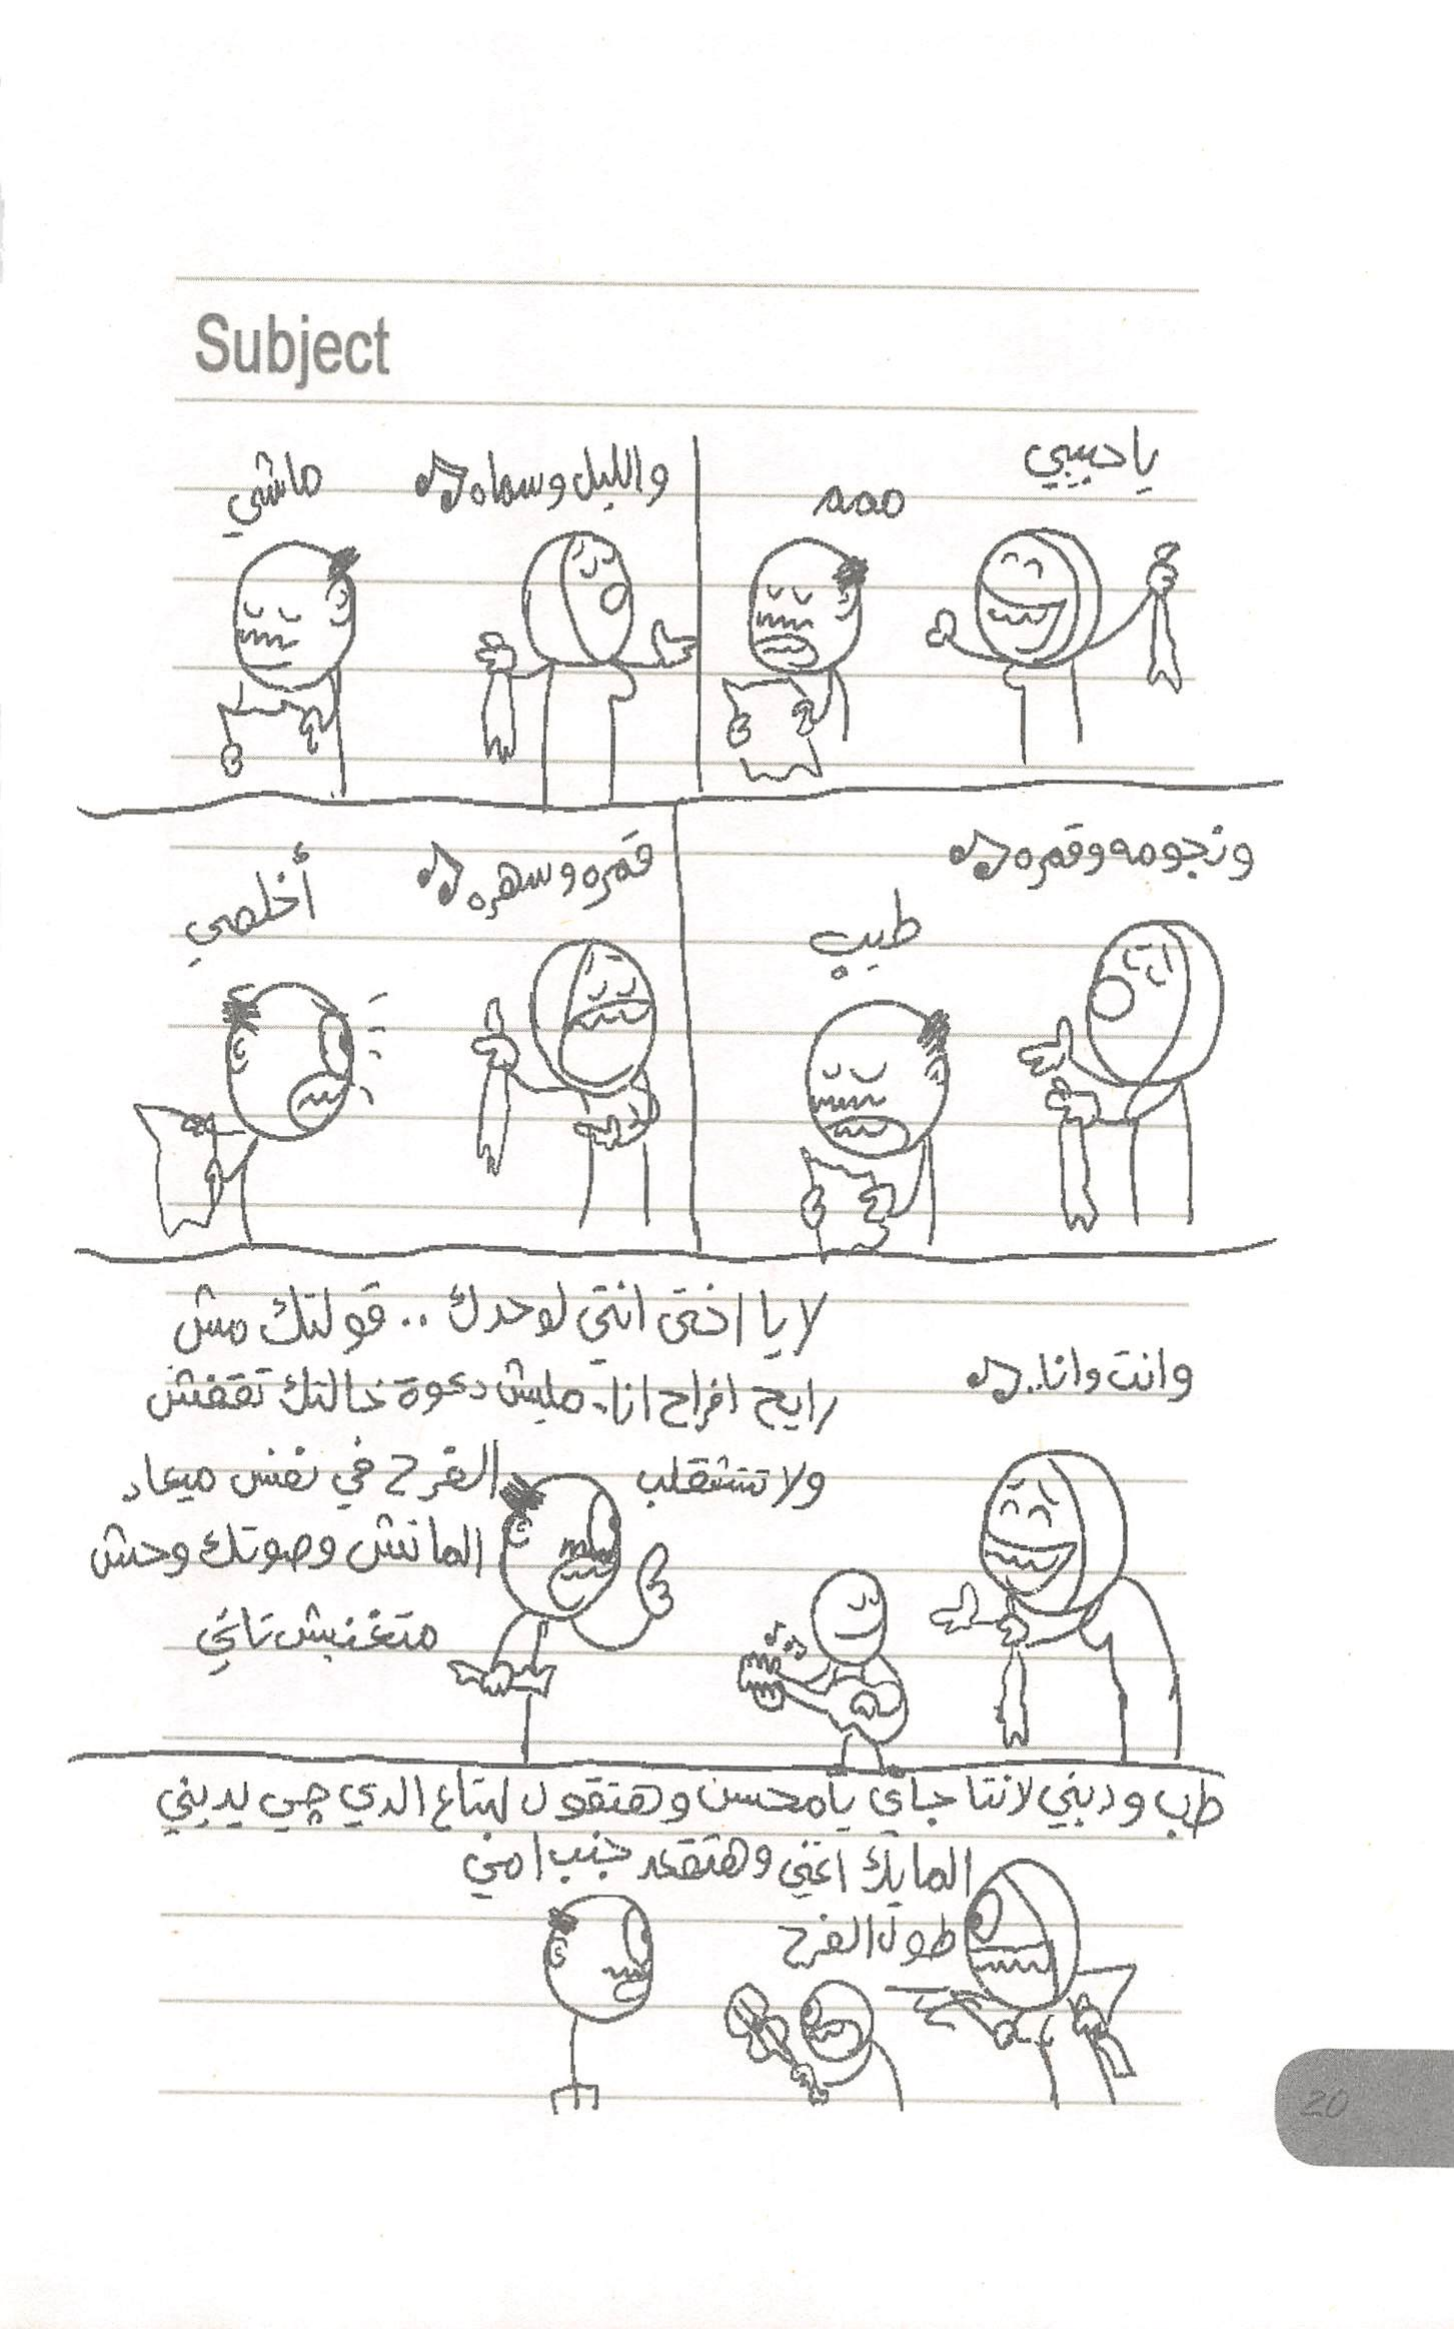 Subject
يا حبيبي
ممم
والليل وسماه
ماشي
ونجومه وقمره
طيب
قمره وسهره
أخلصي
وانت وانا..
لا يا اختي انتي لوحدك .. قولتلك مش
رايح افراح انا.. مليش دعوة خالتك تقفش
ولا تتشقلب
الفرح في نفس ميعاد
الماتش وصوتك وحش
متغنيش تاني
طب وديني لانتا جاي يا محسن وهتقول لبتاع الدي چي يديني
المايك اغني وهتقعد جنب امي
طول الفرح
20